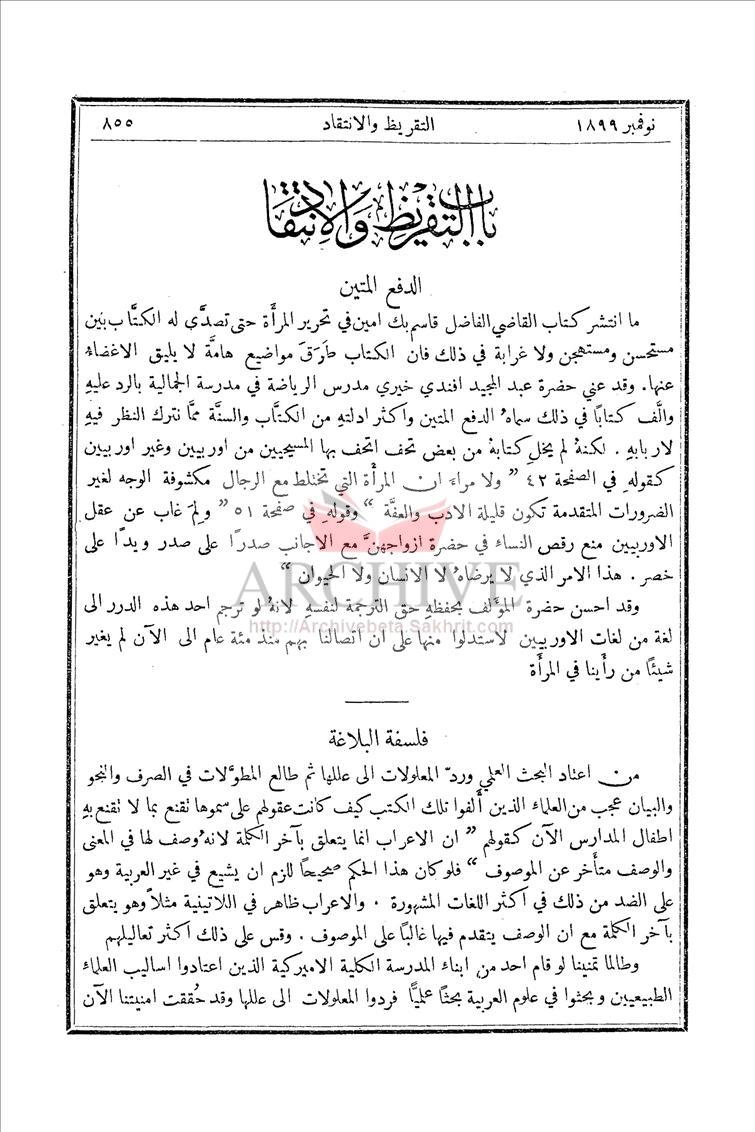 نوفمبر ١٨٩٩ التقريظ والانتقاد ٨٥٥
باب التقريظ والانتقاد
الدفع المتين
ما انتشر كتاب القاضي الفاضل قاسم بك امين في تحرير المرأة حتى تصدَّى له الكتَّاب بين
مستحسن ومستهجن ولا غرابة في ذلك فان الكتاب طَرَقَ مواضيع هامَّة لا يليق الاغضاءُ
عنها. وقد عني حضرة عبد المجيد افندي خيري مدرس الرياضة في مدرسة الجمالية بالرد عليهِ
والَّف كتابًا في ذلك سماهُ الدفع المتين واكثر ادلتهِ من الكتَاب والسنَّة ممَّا نترك النظر فيهِ
لاربابهِ . لكنهُ لم يخلِ كتابهُ من بعض تحف اتحف بها المسيحيين من اوربيين وغير اوربيين
كقولهِ في الصفحة ٤٢ ” ولا مراءَ ان المرأة التي تختلط مع الرجال مكشوفة الوجه لغير
الضرورات المتقدمة تكون قليلة الادب والعفَّة “ وقولهِ في صفحة ٥١ ” ولمَ غاب عن عقل
الاوربيين منع رقص النساء في حضرة ازواجهنَّ مع الاجانب صدرًا على صدر ويدًا على
خصر . هذا الامر الذي لا يرضاهُ لا الانسان ولا الحيوان “
ARCHIVE
وقد احسن حضرة المؤلف بحفظهِ حق الترجمة لنفسهِ لانهُ لو ترجم احد هذه الدرر الى
http://Archivebeta.Sakhrit.com
لغة من لغات الاوربيين لاستدلوا منها على ان اتصالنا بهم منذ مئة عام الى الآن لم يغير
شيئًا من رأينا في المرأة
فلسفة البلاغة
من اعتاد البحث العلمي وردّ المعلولات الى عللها ثم طالع المطوَّلات في الصرف والنحو
والبيان عجب من العلماء الذين أَلفوا تلك الكتب كيف كانت عقولهم على سموها تقنع بما لا تقنع بهِ
اطفال المدارس الآن كقولهم ” ان الاعراب انما يتعلق بآخر الكلمة لانهُ وصف لها في المعنى
والوصف متأخر عن الموصوف “ فلو كان هذا الحكم صحيحًا للزم ان يشيع في غير العربية وهو
على الضد من ذلك في اكثر اللغات المشهورة . والاعراب ظاهر في اللاتينية مثلاً وهو يتعلق
بآخر الكلمة مع ان الوصف يتقدم فيها غالبًا على الموصوف . وقس على ذلك اكثر تعاليلهم
وطالما تمنينا لو قام احد من ابناء المدرسة الكلية الاميركية الذين اعتادوا اساليب العلماء
الطبيعيين وبحثوا في علوم العربية بحثًا علميًّا فردوا المعلولات الى عللها وقد حُققت امنيتنا الآن